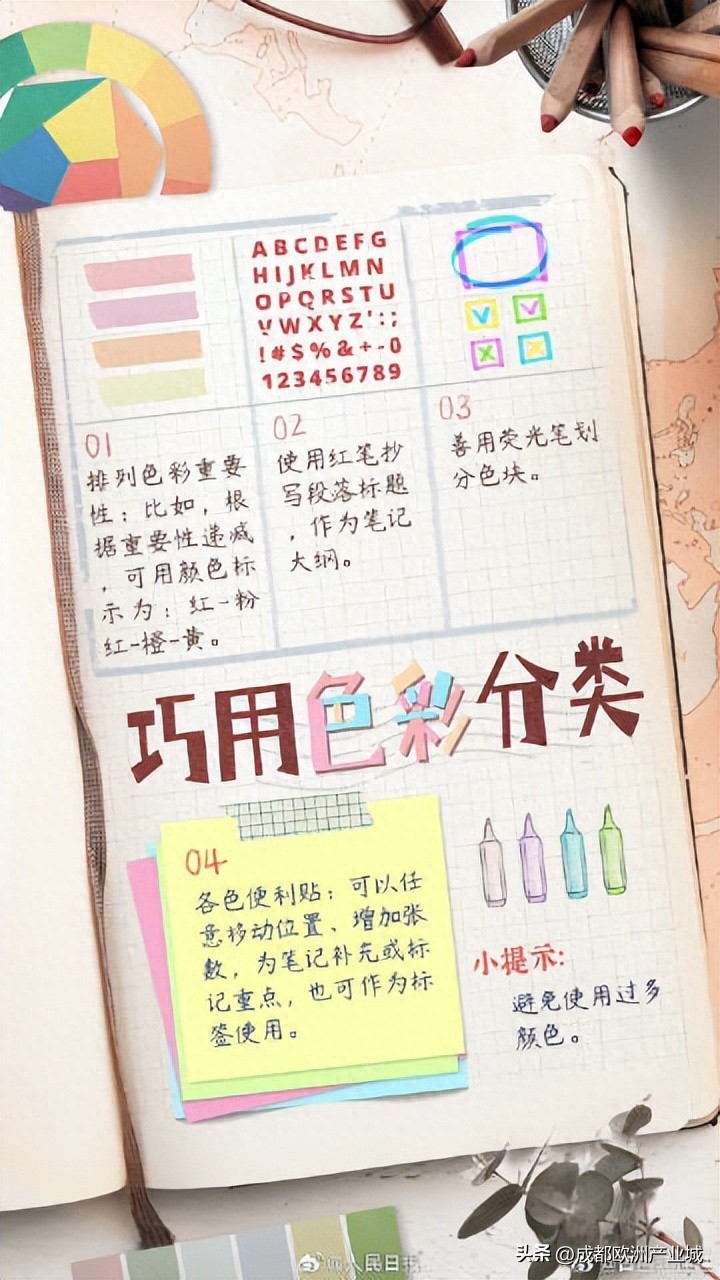 ABCDEFG
HIJKLMN
OPQRSTU
VWXYZ':;
!#$%&+-0
123456789
01
排列色彩重要
性：比如，根
据重要性递减
，可用颜色标
示为：红-粉
红-橙-黄。
02
使用红笔抄
写段落标题
，作为笔记
大纲。
03
善用荧光笔划
分色块。
巧用色彩分类
04
各色便利贴：可以任
意移动位置、增加张
数，为笔记补充或标
记重点，也可作为标
签使用。
小提示：
避免使用过多
颜色。
@人民日报
头条 @成都欧洲产业城